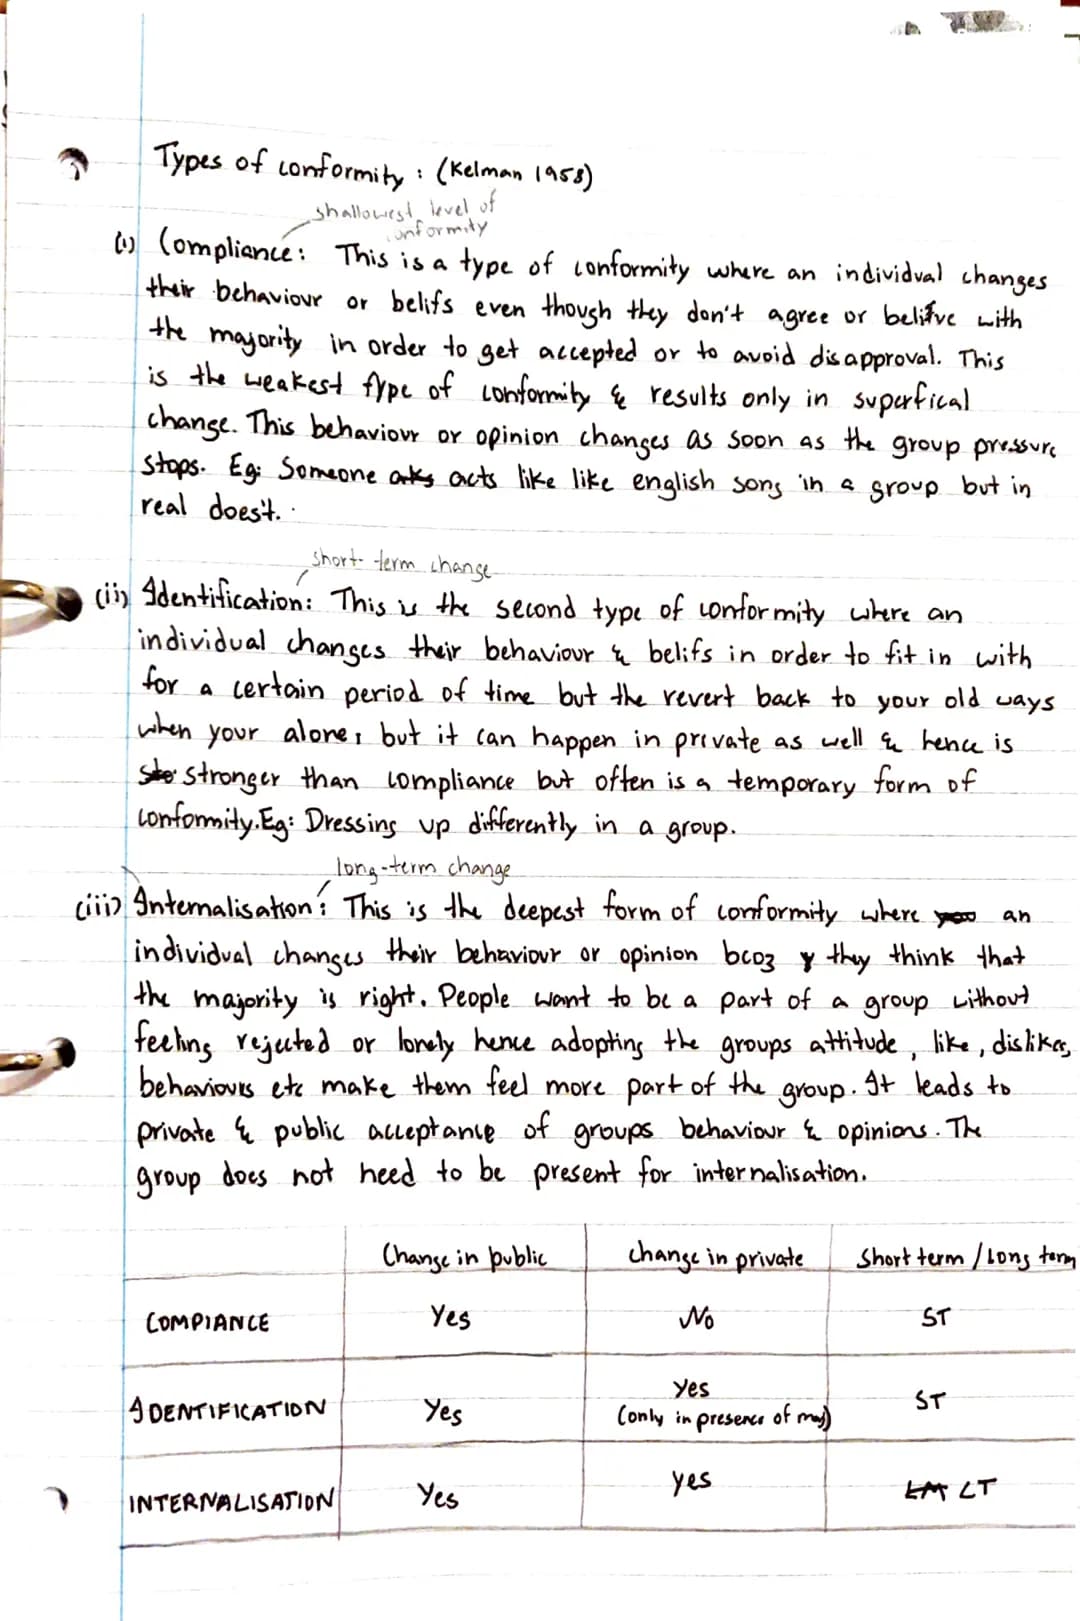 Types of conformity : (Kelman 1958)
shallowest level of
conformity
(i) Compliance: This is a type of conformity where an individual changes
their behaviour or belifs even though they don't agree or belive with
the majority in order to get accepted or to avoid disapproval. This
is the weakest type of conformity & results only in superfical
change. This behaviour or opinion changes as soon as the group pressure
stops. Eg: Someone acts like like english song in a group but in
real does't.
short-term change
(ii) Identification: This is the second type of conformity where an
individual changes their behaviour & belifs in order to fit in with
for a certain period of time but the revert back to your old ways
when your alone, but it can happen in private as well & hence is
stronger than compliance but often is a temporary form of
conformity. Eg: Dressing up differently in a group.
long-term change
(iii) Internalisation: This is the deepest form of conformity where an
individual changes their behaviour or opinion bcoz they think that
the majority is right. People want to be a part of a group without
feeling rejected or lonely hence adopting the groups attitude, like, dislikes,
behaviours etc make them feel more part of the group. It leads to
private & public acceptance of groups behaviour & opinions. The
group does not need to be present for internalisation.
Change in public change in private Short term / Long term
COMPIANCE Yes No ST
IDENTIFICATION Yes Yes ST
(only in presence of maj)
INTERNALISATION Yes yes LT